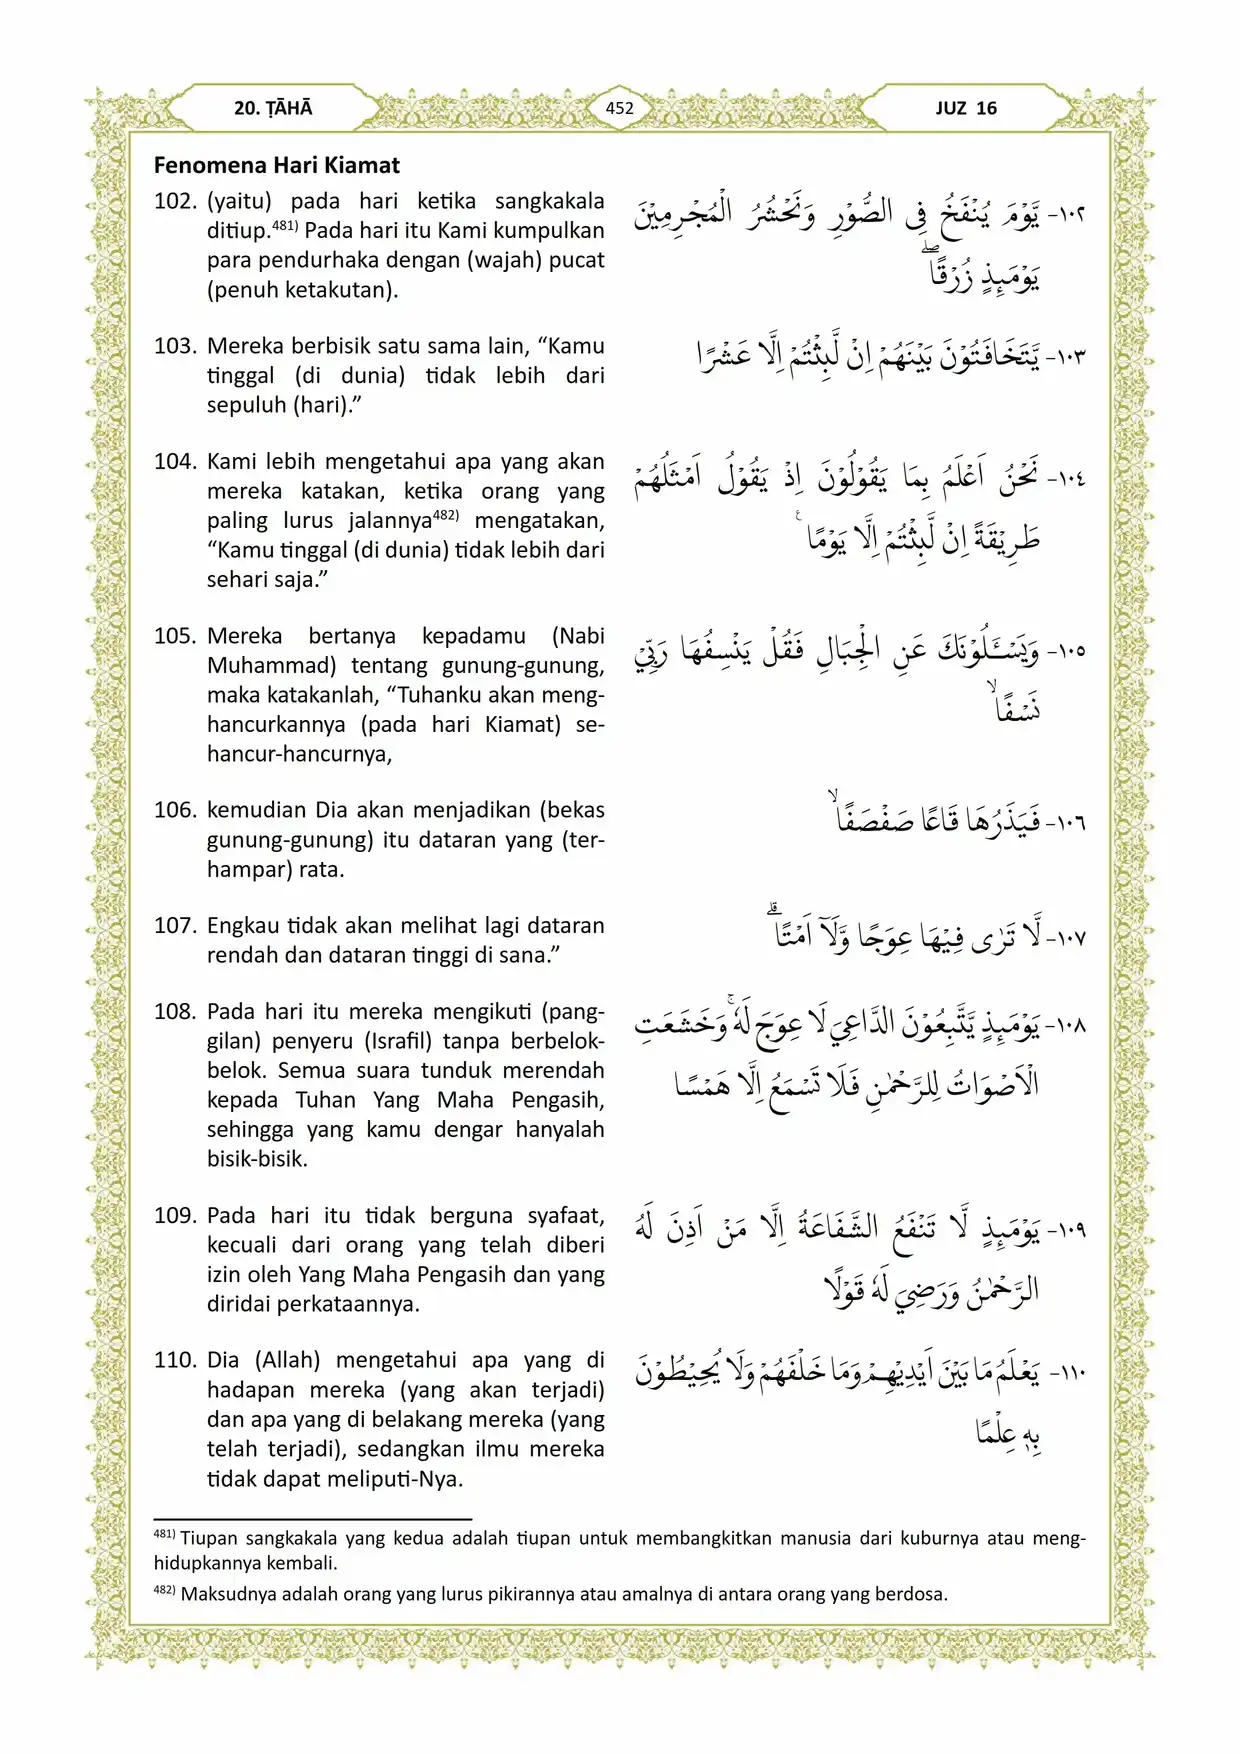 20. ṬĀHĀ
452
JUZ 16
Fenomena Hari Kiamat
102. (yaitu) pada hari ketika sangkakala
ditiup.481) Pada hari itu Kami kumpulkan
para pendurhaka dengan (wajah) pucat
(penuh ketakutan).
١٠٢- يَّوْمَ يُنْفَخُ فِى الصُّوْرِ وَنَحْشُرُ الْمُجْرِمِيْنَ
يَوْمَىِٕذٍ زُرْقًاۖ
103. Mereka berbisik satu sama lain, “Kamu
tinggal (di dunia) tidak lebih dari
sepuluh (hari).”
١٠٣- يَّتَخَافَتُوْنَ بَيْنَهُمْ اِنْ لَّبِثْتُمْ اِلَّا عَشْرًا
104. Kami lebih mengetahui apa yang akan
mereka katakan, ketika orang yang
paling lurus jalannya482) mengatakan,
“Kamu tinggal (di dunia) tidak lebih dari
sehari saja.”
١٠٤- نَحْنُ اَعْلَمُ بِمَا يَقُوْلُوْنَ اِذْ يَقُوْلُ اَمْثَلُهُمْ
طَرِيْقَةً اِنْ لَّبِثْتُمْ اِلَّا يَوْمًا ࣖ
105. Mereka bertanya kepadamu (Nabi
Muhammad) tentang gunung-gunung,
maka katakanlah, “Tuhanku akan meng-
hancurkannya (pada hari Kiamat) se-
hancur-hancurnya,
١٠٥- وَيَسْـَٔلُوْنَكَ عَنِ الْجِبَالِ فَقُلْ يَنْسِفُهَا رَبِّيْ
نَسْفًاۙ
106. kemudian Dia akan menjadikan (bekas
gunung-gunung) itu dataran yang (ter-
hampar) rata.
١٠٦- فَيَذَرُهَا قَاعًا صَفْصَفًاۙ
107. Engkau tidak akan melihat lagi dataran
rendah dan dataran tinggi di sana.”
١٠٧- لَّا تَرٰى فِيْهَا عِوَجًا وَّلَآ اَمْتًاۗ
108. Pada hari itu mereka mengikuti (pang-
gilan) penyeru (Israfil) tanpa berbelok-
belok. Semua suara tunduk merendah
kepada Tuhan Yang Maha Pengasih,
sehingga yang kamu dengar hanyalah
bisik-bisik.
١٠٨- يَوْمَىِٕذٍ يَّتَّبِعُوْنَ الدَّاعِيَ لَا عِوَجَ لَهٗ ۚوَخَشَعَتِ
الْاَصْوَاتُ لِلرَّحْمٰنِ فَلَا تَسْمَعُ اِلَّا هَمْسًا
109. Pada hari itu tidak berguna syafaat,
kecuali dari orang yang telah diberi
izin oleh Yang Maha Pengasih dan yang
diridai perkataannya.
١٠٩- يَوْمَىِٕذٍ لَّا تَنْفَعُ الشَّفَاعَةُ اِلَّا مَنْ اَذِنَ لَهُ
الرَّحْمٰنُ وَرَضِيَ لَهٗ قَوْلًا
110. Dia (Allah) mengetahui apa yang di
hadapan mereka (yang akan terjadi)
dan apa yang di belakang mereka (yang
telah terjadi), sedangkan ilmu mereka
tidak dapat meliputi-Nya.
١١٠- يَعْلَمُ مَا بَيْنَ اَيْدِيْهِمْ وَمَا خَلْفَهُمْ وَلَا يُحِيْطُوْنَ
بِهٖ عِلْمًا
481) Tiupan sangkakala yang kedua adalah tiupan untuk membangkitkan manusia dari kuburnya atau meng-
hidupkannya kembali.
482) Maksudnya adalah orang yang lurus pikirannya atau amalnya di antara orang yang berdosa.